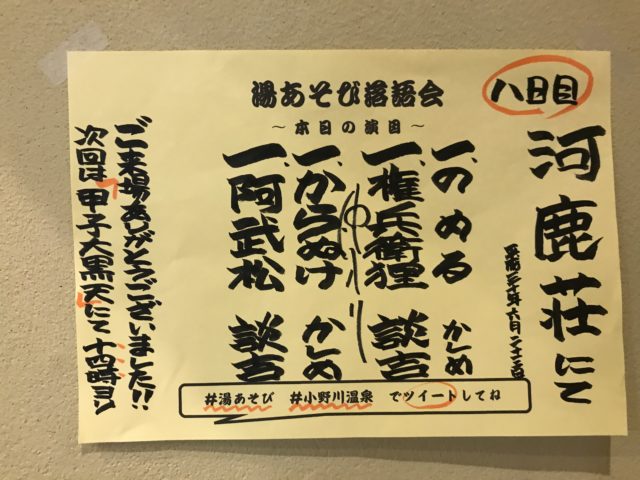 湯あそび落語会
～本日の演目～
八日目
河鹿荘にて
平成三十年六月二十三日
一、のめる かしめ
一、権兵衛狸 談吉
ゆいり
一、からぬけ かしめ
一、阿武松 談吉
ご来場ありがとうございました!!
次回は「甲子大黒天」にて十四時ヨリ
#湯あそび #小野川温泉 でツイートしてね